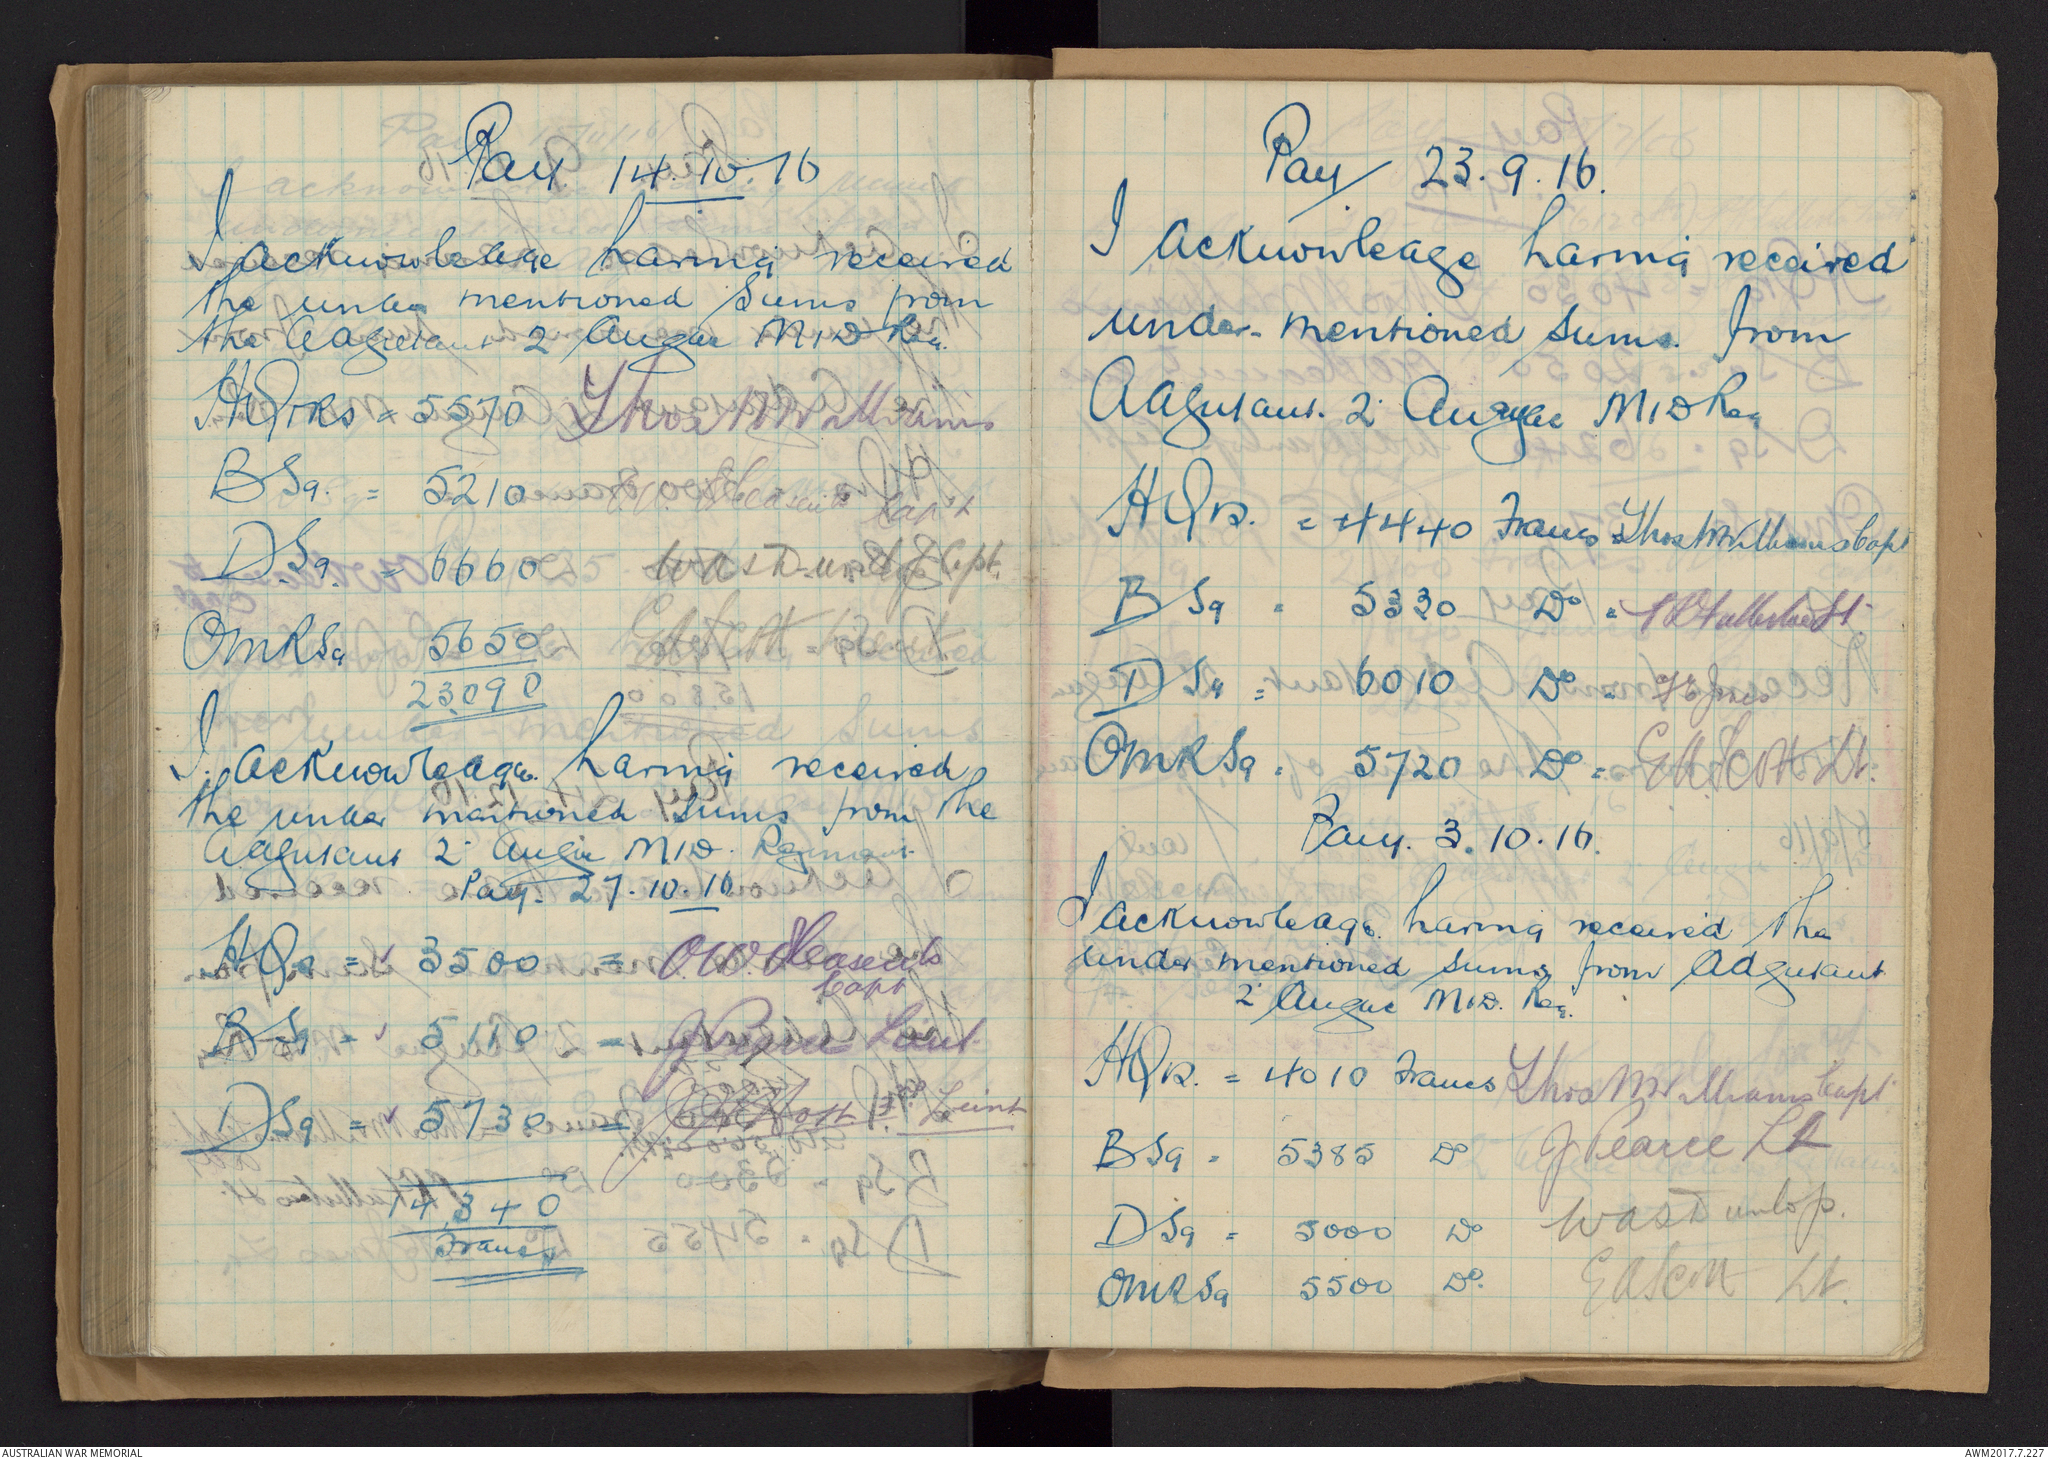 Pay. 14.10.16
I acknowledge having received
the under mentioned sums from
the Adjutant 2 Anzac M I D Reg.
HQtrs = 5570 Thos M Williams
B Sq. = 5210 Capt
D Sq. = 6660 W A S Dunlop Capt.
OMR Sq 5650 E A Scott Lieut
23090
I. acknowledge having received
the under mentioned sums from the
Adjutant 2nd Anzac M I D. Regiment
Pay. 27.10.16
HQrs = 3500 = O.W. Pleasents
Capt
B Sq = 5110 = J Pearce Lieut
D Sq = 5730 = Leint
14,340
Francs
Pay 23.9.16.
I acknowledge having received
under-mentioned sums. from
Adjutant. 2nd Anzac M I D Reg
HQrs. = 4440 Francs Thos M Williams Capt
B Sq = 5330 Do =
D Sq = 6010 Do = Jones
OMR Sq = 5720 Do = E A Scott Lt.
Pay. 3.10.16.
I acknowledge having received the
under mentioned sums from Adjutant
2nd Anzac M I D. Reg.
HQrs. = 4010 Francs Thos M Williams Capt
B Sq = 5385 Do J Pearce Lt
D Sq = 5000 Do W A S Dunlop.
OMR Sq 5500 Do. E A Scott Lt.
AUSTRALIAN WAR MEMORIAL
AWM2017.7.227